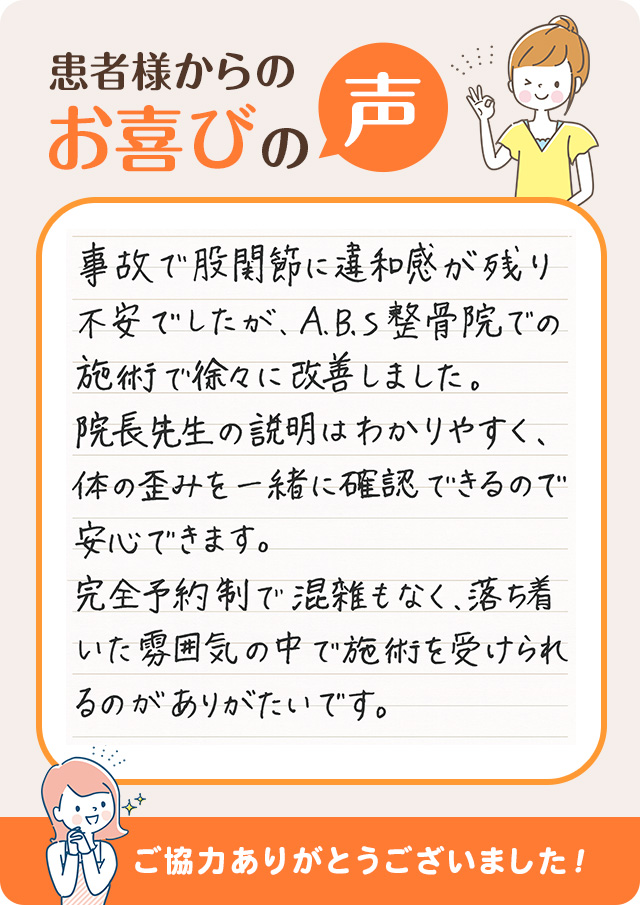 患者様からの
お喜びの声
事故で股関節に違和感が残り
不安でしたが、A.B.S整骨院での
施術で徐々に改善しました。
院長先生の説明はわかりやすく、
体の歪みを一緒に確認できるので
安心できます。
完全予約制で混雑もなく、落ち着
いた雰囲気の中で施術を受けられ
るのがありがたいです。
ご協力ありがとうございました！